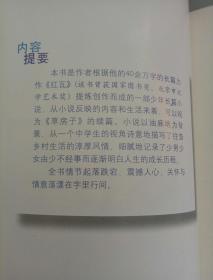 内容
提要
本书是作者根据他的40余万字的长篇力
作《红瓦》(该书曾获国家图书奖、北京市文
学艺术奖)提炼创作而成的一部少年长篇小
说，从小说反映的内容和生活来看，可以视
为《草房子》的续篇。小说以油麻地为背
景，从一个中学生的视角诗意地描写了往昔
乡村生活的淳厚风情，细腻地记录了少男少
女由少不经事而逐渐明白人生的成长历程。
全书情节起落跌宕，震撼人心，关怀与
情意荡漾在字里行间。